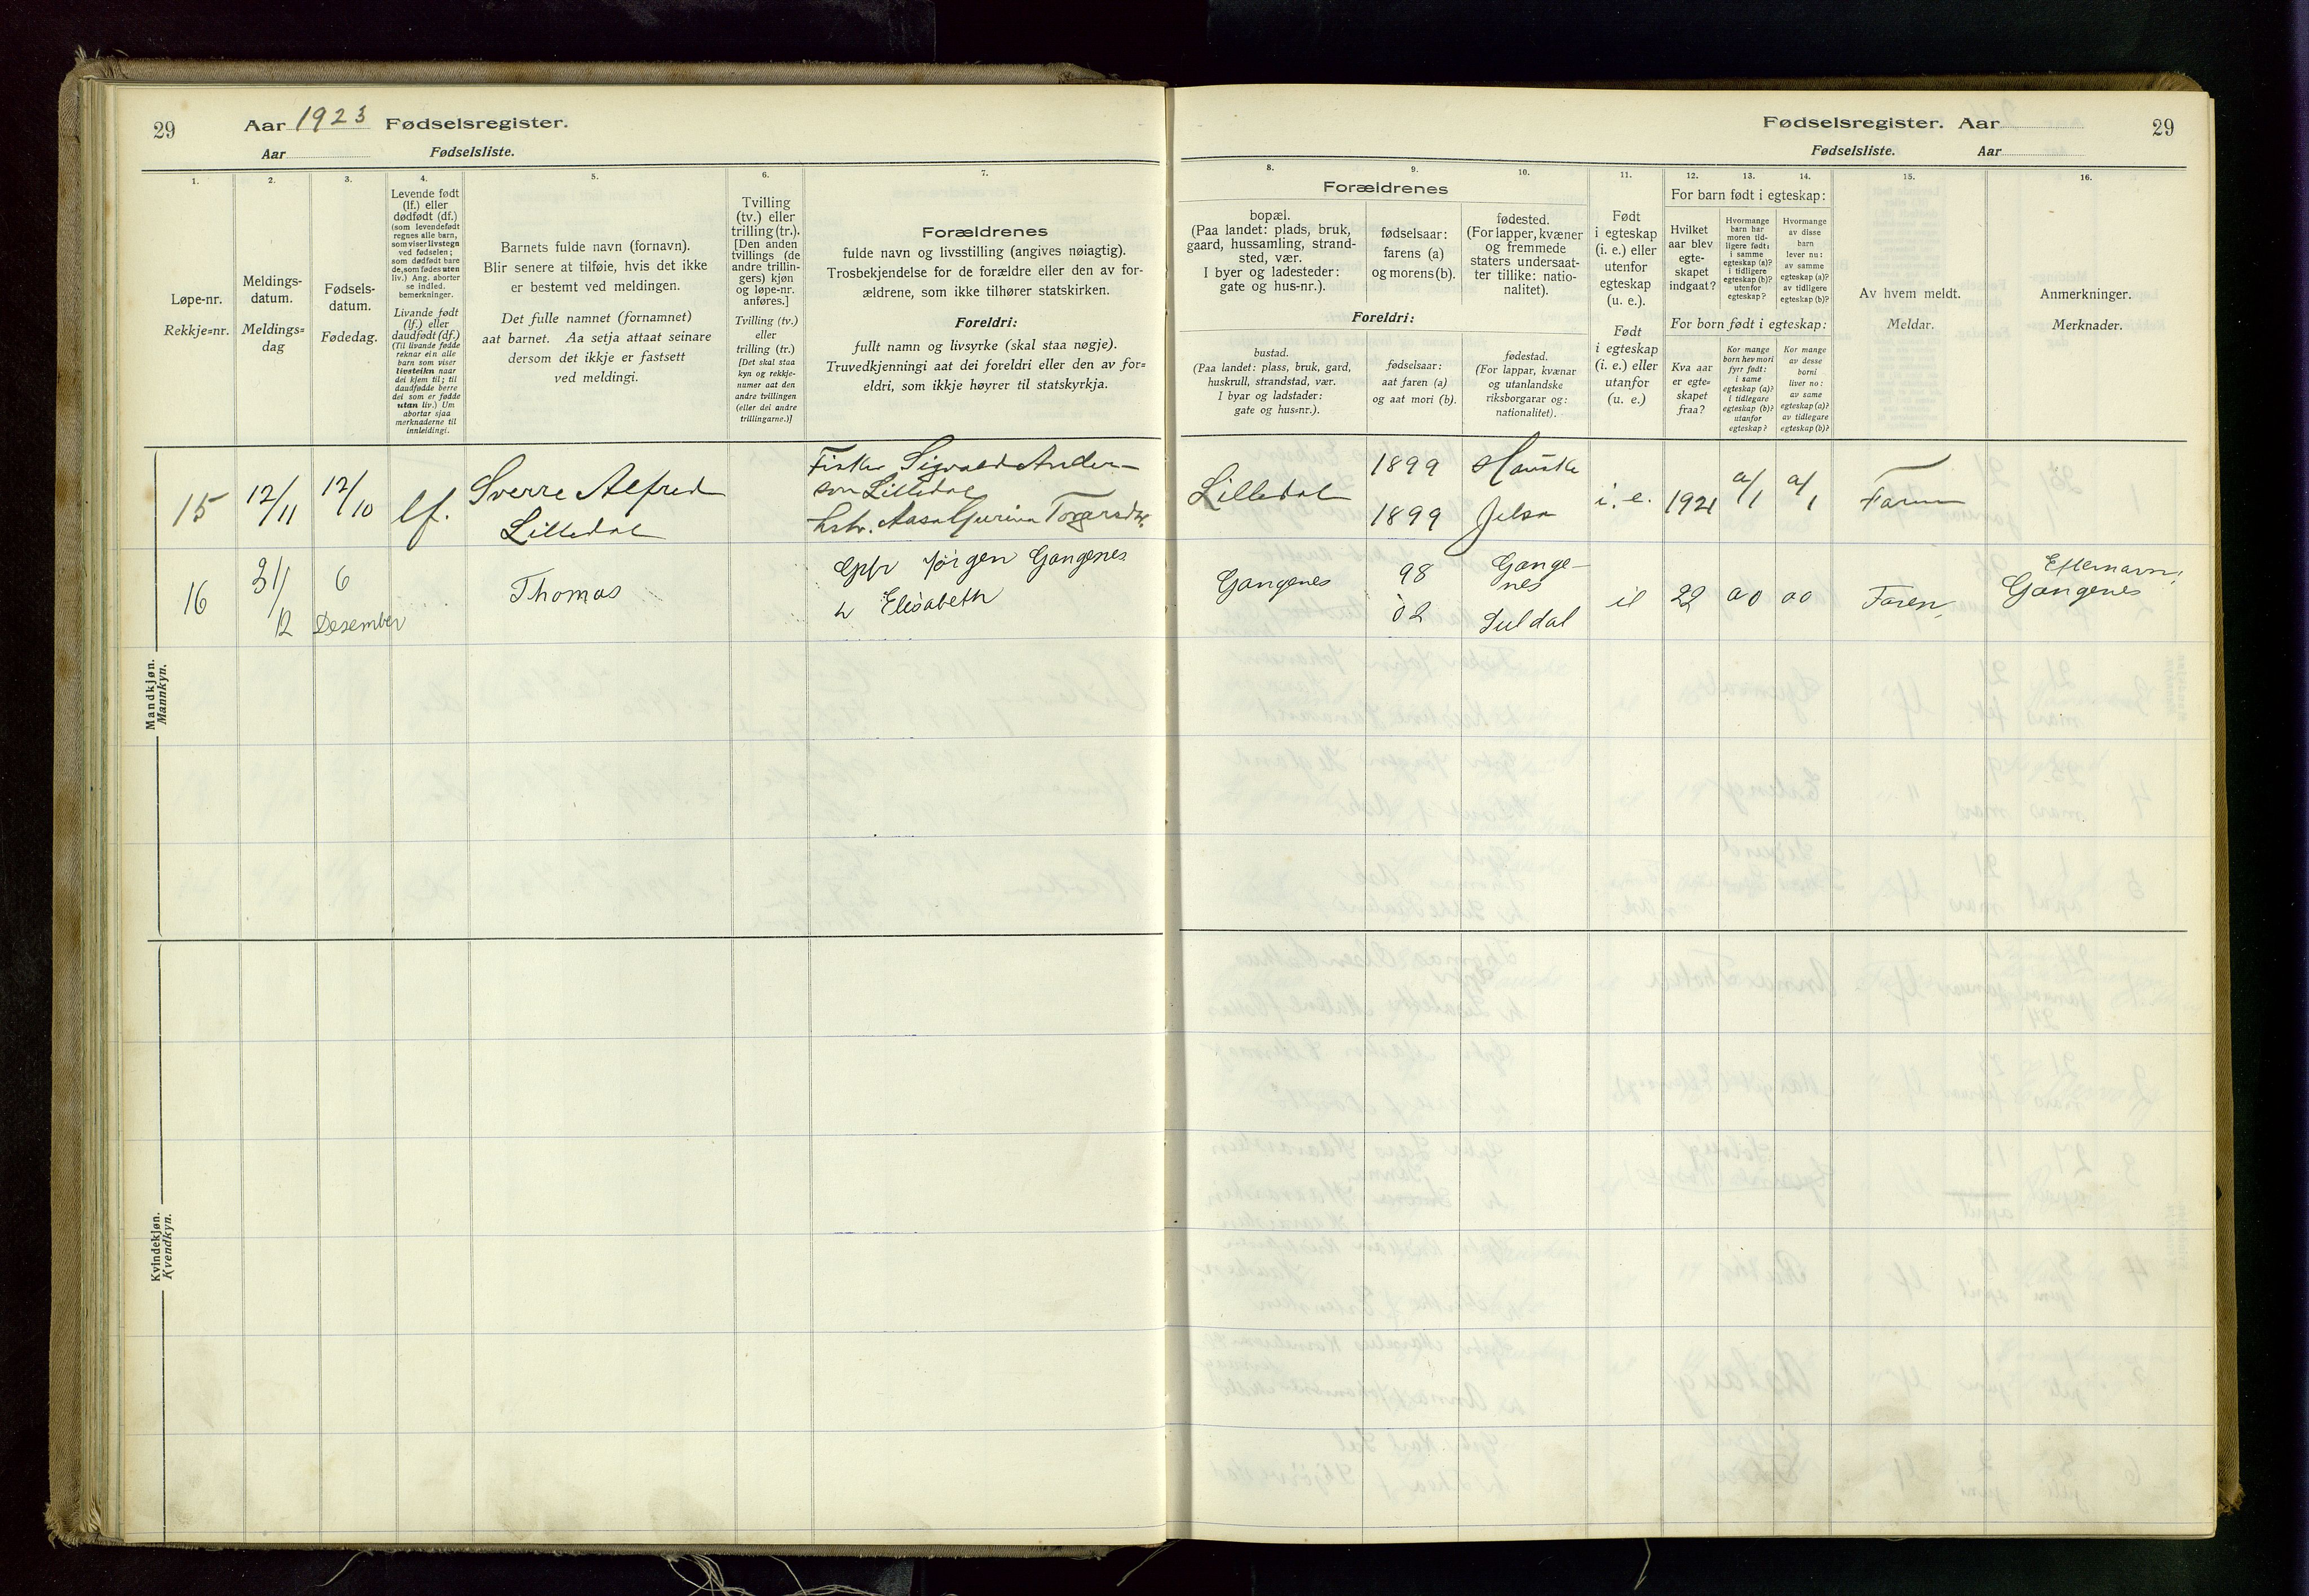 29
Aar 1923 Fødselsregister.
Aar Fødselsliste.
Fødselsregister. Aar
29
Fødselsliste. Aar
1.
Løpe-nr.
Rekkje=nr.
2.
Meldings-
datum.
Meldings=
dag
3.
Fødsels-
datum.
Fødedag.
4.
Levende født
(lf.) eller
dødfødt (df.)
(som levendefødt
regnes alle barn,
som viser livstegn
ved fødselen;
som dødfødt bare
de, som fødes uten
liv.) Ang. aborter
se indled.
bemerkninger.
Livande født
(lf.) eller
daudfødt (df.)
(Til livande fødde
reknar ein alle
barn som viser
livsteikn naar
dei kjem til; til
daudfødde berre
dei som er fødde
utan liv.) Um
abortar sjaa
merknaderne til
innleidingi.
5.
Barnets fulde navn (fornavn).
Blir senere at tilføie, hvis det ikke
er bestemt ved meldingen.
Det fulle namnet (fornamnet)
aat barnet. Aa setja attaat seinare
dersom det ikkje er fastsett
ved meldingi.
6.
Tvilling
(tv.) eller
trilling (tr.).
[Den anden
tvillings (de
andre trillin-
gers) kjøn
og løpe-nr.
anføres.]
Tvilling (tv.)
eller
trilling (tr.)
[Det skal staa
kyn og rekkje-
numer aat den
andre tvillingen
(eller dei andre
trillingarne.)]
7.
Forældrenes
fulde navn og livsstilling (angives nøiagtig).
Trosbekjendelse for de forældre eller den av for-
ældrene, som ikke tilhører statskirken.
Foreldri:
fullt namn og livsyrke (skal staa nøgje).
Truvedkjenningi aat dei foreldri eller den av for=
eldri, som ikkje høyrer til statskyrkja.
Forældrenes
8.
bopæl.
(Paa landet: plads, bruk,
gaard, hussamling, strand-
sted, vær.
I byer og ladesteder:
gate og hus-nr.).
9.
fødselsaar:
farens (a)
og morens (b).
10.
fødested.
(For lapper, kvæner
og fremmede
staters undersaat-
ter tillike: natio-
nalitet).
Foreldri:
bustad.
(Paa landet: plass, bruk, gard,
huskrull, strandstad, vær.
I byar og ladstader:
gate og hus=nr.).
fødselsaar:
aat faren (a)
og aat mori (b).
fødestad.
(For lappar, kvænar
og utanlandske
riksborgarar og:
nationalitet).
11.
Født
i egteskap
(i. e.) eller
utenfor
egteskap
(u. e.).
Født
i egteskap
(i. e.) eller
utanfor
(u. e.)
12. 13. 14.
For barn født i egteskap:
Hvilket
aar blev
egte-
skapet
indgaat?
Hvormange
barn har
moren tid-
ligere født:
i samme
egteskap (a)?
i tidligere
egteskap (b)?
utenfor
egteskap?
Hvormange
av disse
barn
lever nu:
av samme
egteskap (a)?
av tidligere
egteskap (b)?
For born født i egteskap:
Kva aar
er egte=
skapet
fraa?
Kor mange
born hev mori
fyrr født:
i same
egteskap (a)?
i tidlegare
egteskap (b)?
utanfor
egteskap?
Kor mange
av desse
borni
liver no:
av same
egteskap (a)?
av tidlegare
egteskap (b)?
15.
Av hvem meldt.
Meldar.
16.
Anmerkninger.
Merknader.
Mandkjøn.
Mannkyn.
15 12/11 12/10 lf. Sverre Alfred
Lilledal
Fisker Sigvald Ander-
son Lilledal
hstr. Aasa Gurina Torgersdtr.
Lilledal 1899
1899 Jelsa i. e. 1921 a/1 a/1 Faren
16 31/12 6
Desember Thomas
Gpbr Jørgen Gangenes
h Elisabeth
Gangenes 98 Gange-
nes
02 Suldal
ie 22 a0 a0 Faren
Efternavn:
Gangenes
Kvindekjøn.
Kvendkyn.